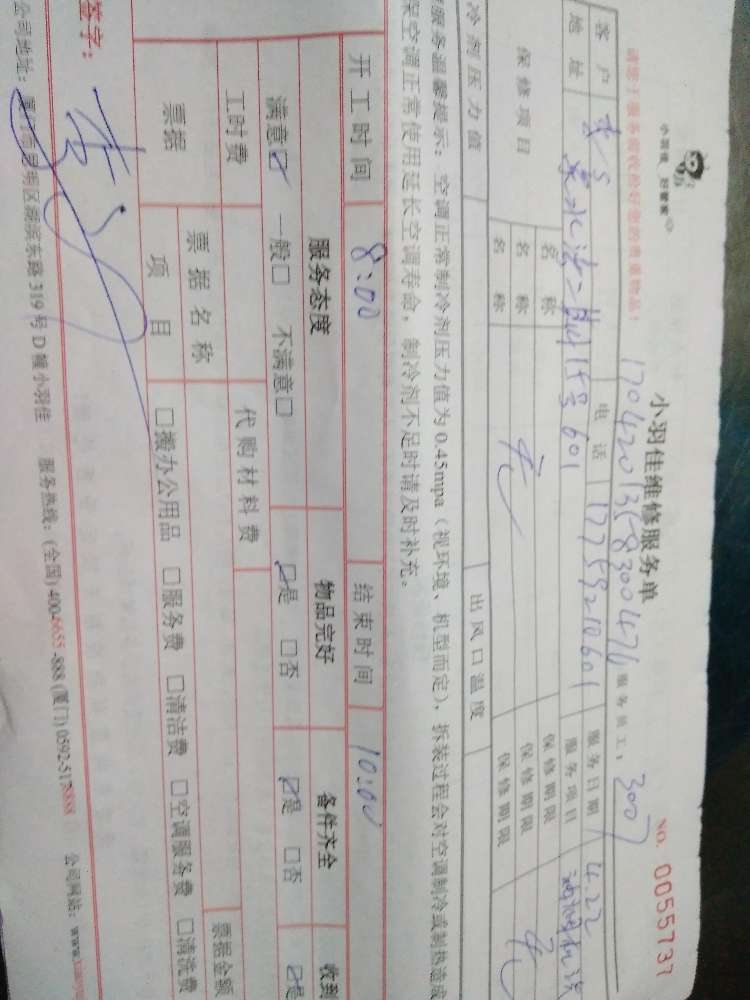 小羽佳 好管家
小羽佳维修服务单
NO. 0055737
170420135830047 服务员工：3007
请您于服务前收捡好您的贵重物品！
客户 电话 17759210601 服务日期 4.22
地址 601 服务项目
保修项目 名称 保修期限
名称 无 保修期限 无
名称 保修期限
冷剂压力值 出风口温度
服务温馨提示：空调正常制冷剂压力值为 0.45mpa（视环境、机型而定），拆装过程会对空调制冷或制热造成
保空调正常使用延长空调寿命，制冷剂不足时请及时补充。
开工时间 8:00 结束时间 10:00
服务态度 物品完好 备件齐全 收到
满意☑ 一般□ 不满意□ ☑是 □否 ☑是 □否 ☑是
工时费 代购材料费
票据 票据名称 票据金额
项目 □搬办公用品 □服务费 □清洁费 □空调服务费 □清洗费
签字：
公司地址：厦门市思明区湖滨东路 319 号 D 幢小羽佳 服务热线：(全国) 400-6655-888 (厦门) 0592-5178888 公司网站：www.